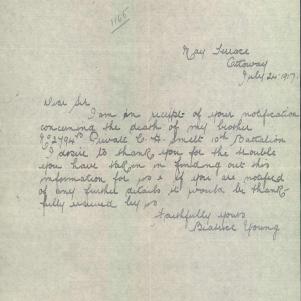 1165
May Terrace
Ottoway
July 24. 1917.
Dear Sir
I am in receipt of your notification
concerning the death of my brother
No 2794 Private C. A. Smelt 10th Battalion
I desire to thank you for the trouble
you have taken in finding out this
information for us & if you are notified
of any further details it would be thank-
fully received by us
Faithfully yours
Beatrice Young